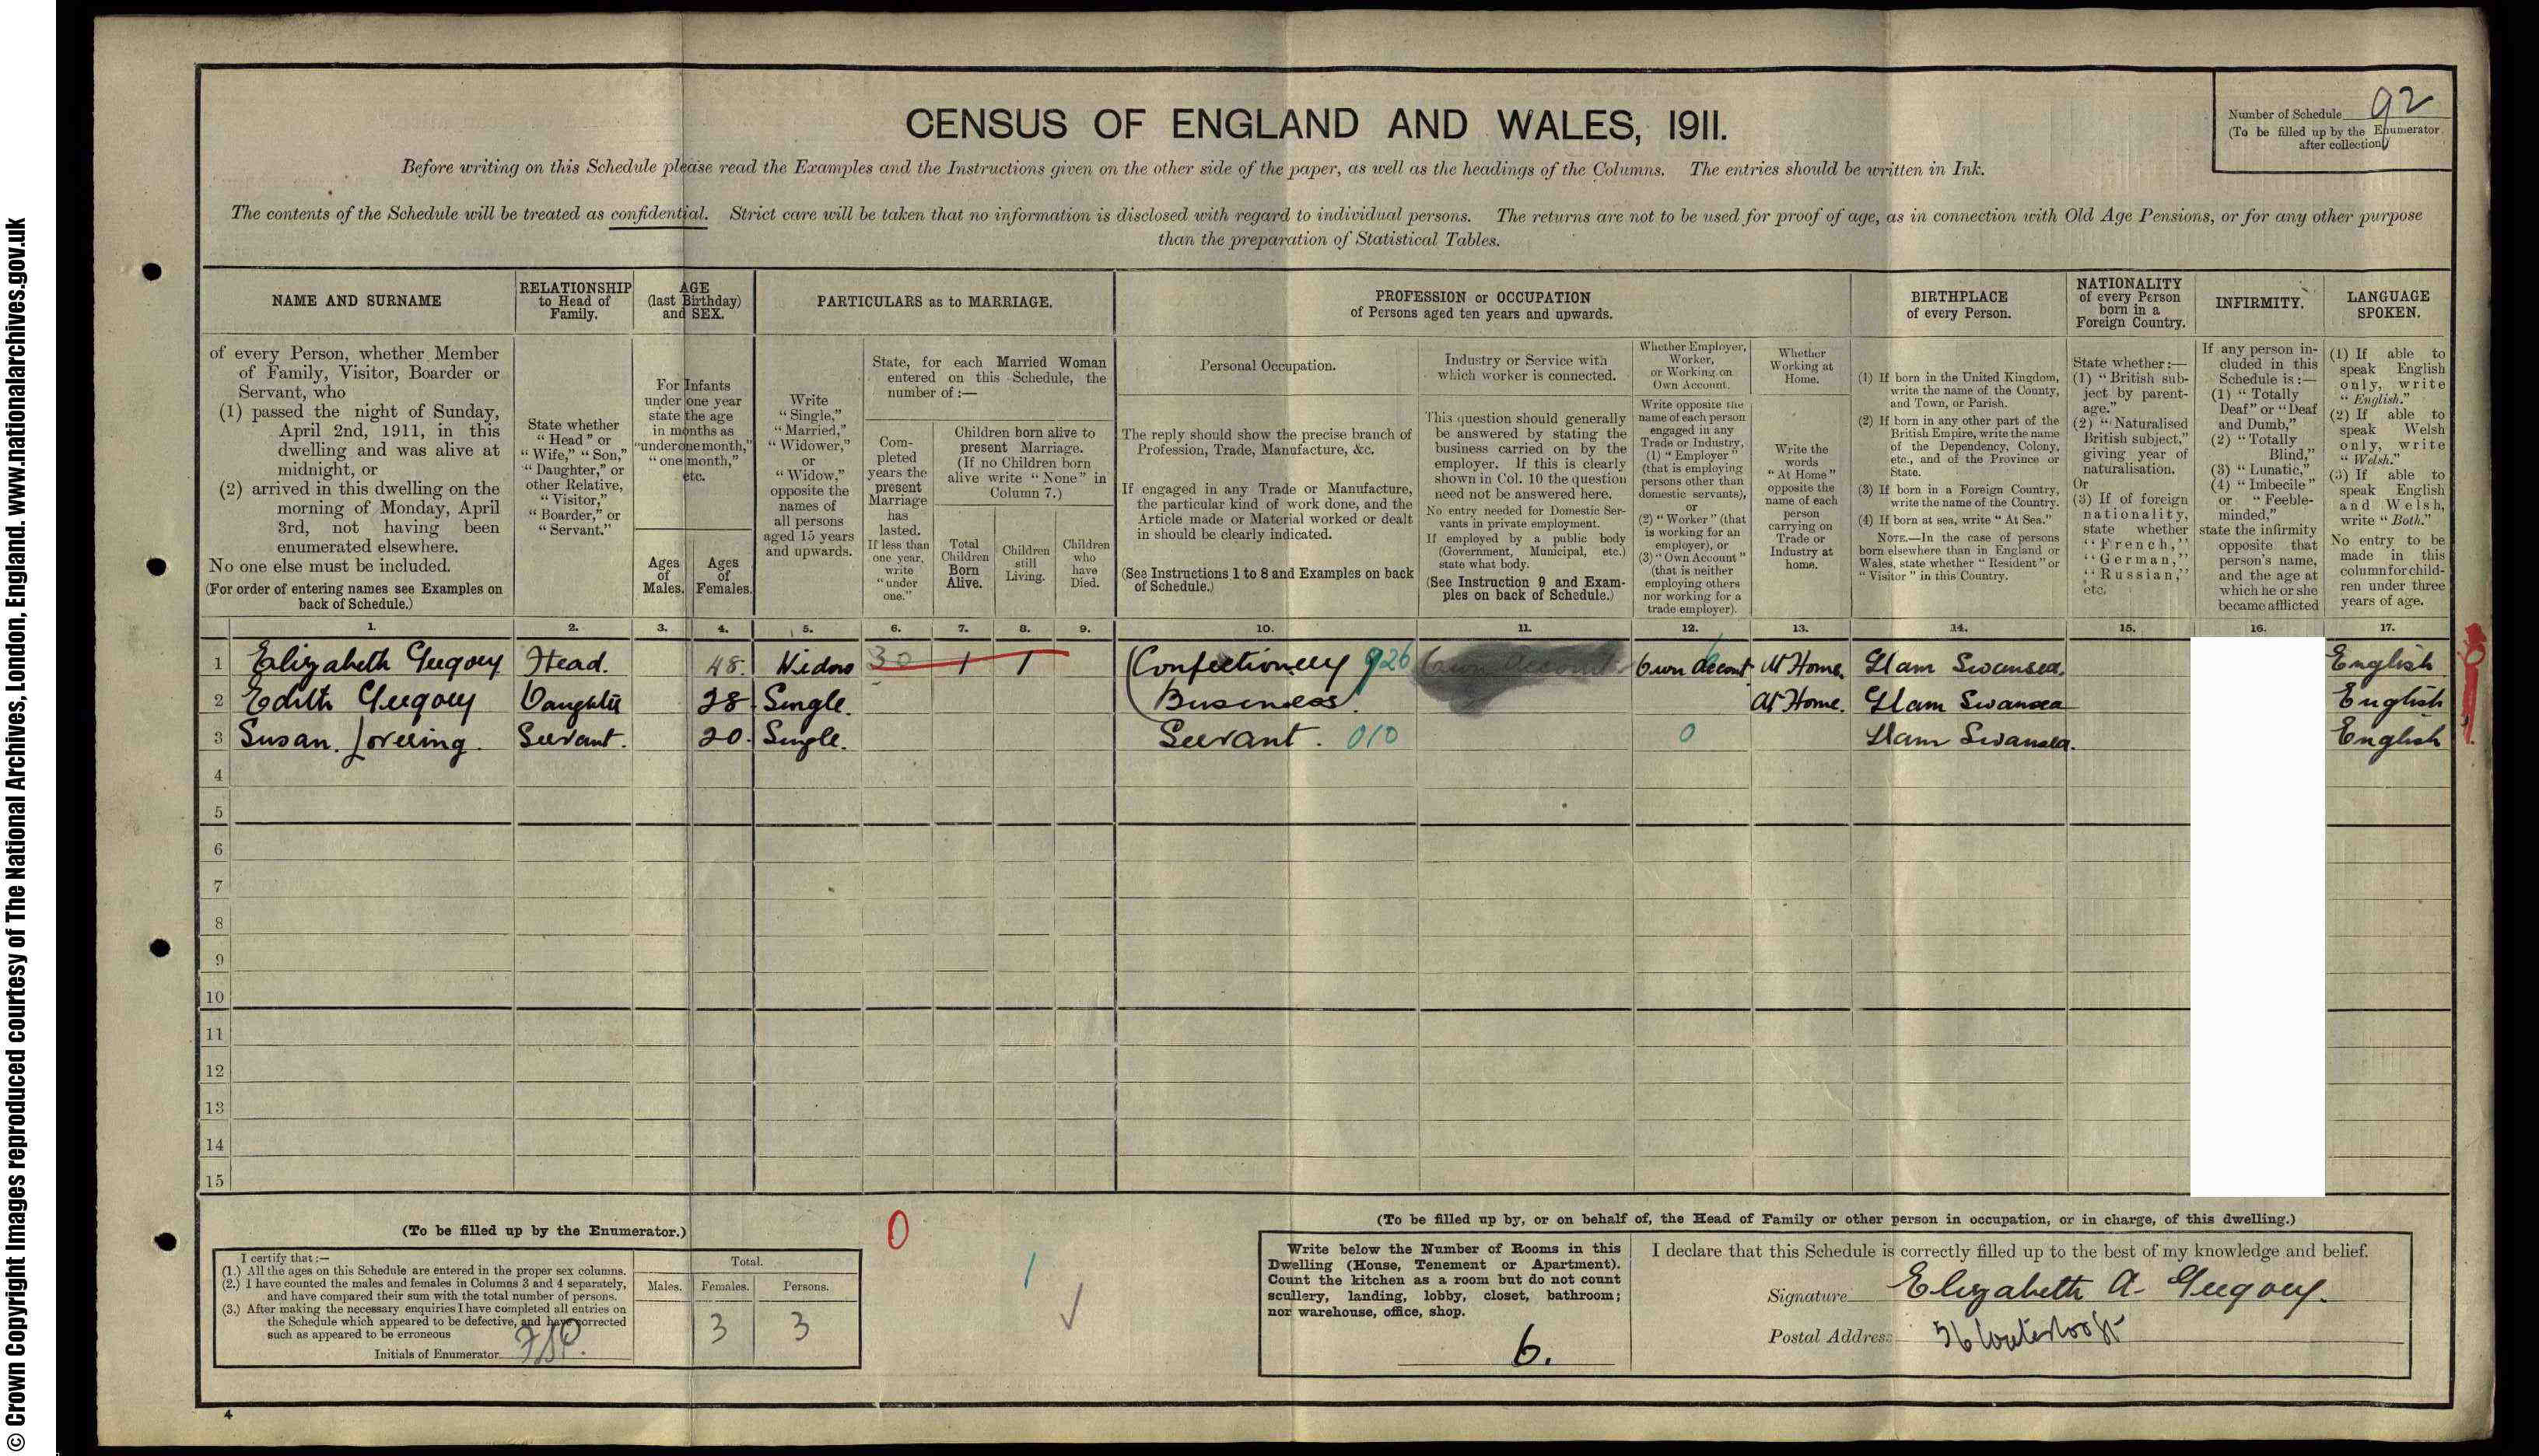 © Crown Copyright Images reproduced courtesy of The National Archives, London, England. www.nationalarchives.gov.uk
CENSUS OF ENGLAND AND WALES, 1911.
Number of Schedule 92
(To be filled up by the Enumerator
after collection)
Before writing on this Schedule please read the Examples and the Instructions given on the other side of the paper, as well as the headings of the Columns. The entries should be written in Ink.
The contents of the Schedule will be treated as confidential. Strict care will be taken that no information is disclosed with regard to individual persons. The returns are not to be used for proof of age, as in connection with Old Age Pensions, or for any other purpose
than the preparation of Statistical Tables.
NAME AND SURNAME
of every Person, whether Member
of Family, Visitor, Boarder or
Servant, who
(1) passed the night of Sunday,
April 2nd, 1911, in this
dwelling and was alive at
midnight, or
(2) arrived in this dwelling on the
morning of Monday, April
3rd, not having been
enumerated elsewhere.
No one else must be included.
(For order of entering names see Examples on
back of Schedule.)
RELATIONSHIP
to Head of
Family.
State whether
"Head" or
"Wife," "Son,"
"Daughter," or
other Relative,
"Visitor,"
"Boarder," or
"Servant."
AGE
(last Birthday)
and SEX.
For Infants
under one year
state the age
in months as
"under one month,"
"one month,"
etc.
Ages
of
Males.
Ages
of
Females.
PARTICULARS as to MARRIAGE.
Write
"Single,"
"Married,"
"Widower,"
or
"Widow,"
opposite the
names of
all persons
aged 15 years
and upwards.
State, for each Married Woman
entered on this Schedule, the
number of :—
Com-
pleted
years the
present
Marriage
has
lasted.
If less than
one year,
write
"under
one."
Children born alive to
present Marriage.
(If no Children born
alive write "None" in
Column 7.)
Total
Children
Born
Alive.
Children
still
Living.
Children
who
have
Died.
PROFESSION or OCCUPATION
of Persons aged ten years and upwards.
Personal Occupation.
The reply should show the precise branch of
Profession, Trade, Manufacture, &c.
If engaged in any Trade or Manufacture,
the particular kind of work done, and the
Article made or Material worked or dealt
in should be clearly indicated.
(See Instructions 1 to 8 and Examples on back
of Schedule.)
Industry or Service with
which worker is connected.
This question should generally
be answered by stating the
business carried on by the
employer. If this is clearly
shown in Col. 10 the question
need not be answered here.
No entry needed for Domestic Ser-
vants in private employment.
If employed by a public body
(Government, Municipal, etc.)
state what body.
(See Instruction 9 and Exam-
ples on back of Schedule.)
Whether Employer,
Worker,
or Working on
Own Account.
Write opposite the
name of each person
engaged in any
Trade or Industry,
(1) "Employer"
(that is employing
persons other than
domestic servants),
or
(2) "Worker" (that
is working for an
employer), or
(3) "Own Account"
(that is neither
employing others
nor working for a
trade employer).
Whether
Working at
Home.
Write the
words
"At Home"
opposite the
name of each
person
carrying on
Trade or
Industry at
home.
BIRTHPLACE
of every Person.
(1) If born in the United Kingdom,
write the name of the County,
and Town, or Parish.
(2) If born in any other part of the
British Empire, write the name
of the Dependency, Colony,
etc., and of the Province or
State.
(3) If born in a Foreign Country,
write the name of the Country.
(4) If born at sea, write "At Sea."
NOTE.—In the case of persons
born elsewhere than in England or
Wales, state whether "Resident" or
"Visitor" in this Country.
NATIONALITY
of every Person
born in a
Foreign Country.
State whether :—
(1) "British sub-
ject by parent-
age."
(2) "Naturalised
British subject,"
giving year of
naturalisation.
Or
(3) If of foreign
nationality,
state whether
"French,"
"German,"
"Russian,"
etc.
INFIRMITY.
If any person in-
cluded in this
Schedule is :—
(1) "Totally
Deaf" or "Deaf
and Dumb,"
(2) "Totally
Blind,"
(3) "Lunatic,"
(4) "Imbecile"
or "Feeble-
minded,"
state the infirmity
opposite that
person's name,
and the age at
which he or she
became afflicted
LANGUAGE
SPOKEN.
(1) If able to
speak English
only, write
"English."
(2) If able to
speak Welsh
only, write
"Welsh."
(3) If able to
speak English
and Welsh,
write "Both."
No entry to be
made in this
column for child-
ren under three
years of age.
1. 2. 3. 4. 5. 6. 7. 8. 9. 10. 11. 12. 13. 14. 15. 16. 17.
1 Elizabeth Gregory Head. 48. Widow 30 1 1 Confectionery 926 Own Account At Home. Glam Swansea. English
2 Edith Gregory Daughter 28 Single. Business. At Home. Glam Swansea English
3 Susan. Lovering. Servant. 20. Single. Servant. 010 0 Glam Swansea. English
4
5
6
7
8
9
10
11
12
13
14
15
(To be filled up by the Enumerator.)
I certify that :—
(1.) All the ages on this Schedule are entered in the proper sex columns.
(2.) I have counted the males and females in Columns 3 and 4 separately,
and have compared their sum with the total number of persons.
(3.) After making the necessary enquiries I have completed all entries on
the Schedule which appeared to be defective, and have corrected
such as appeared to be erroneous
Initials of Enumerator
Total.
Males. Females. Persons.
3 3
0
1
(To be filled up by, or on behalf of, the Head of Family or other person in occupation, or in charge, of this dwelling.)
Write below the Number of Rooms in this
Dwelling (House, Tenement or Apartment).
Count the kitchen as a room but do not count
scullery, landing, lobby, closet, bathroom;
nor warehouse, office, shop.
6.
I declare that this Schedule is correctly filled up to the best of my knowledge and belief.
Signature Elizabeth A. Gregory.
Postal Address 36 Waterloo St
4